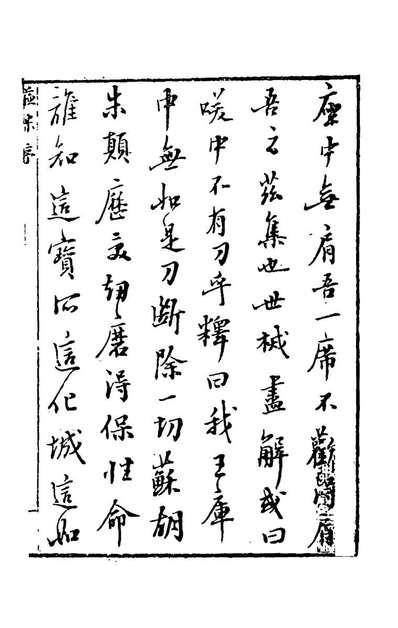 塵中無肩吾一席不
吾之茲集也世械盡解或曰
咲中不有刀乎釋曰我王庫
中無如是刀斷除一切蘇胡
朱顛歷交劫磨得保性命
誰知這寶所這化城這如
序